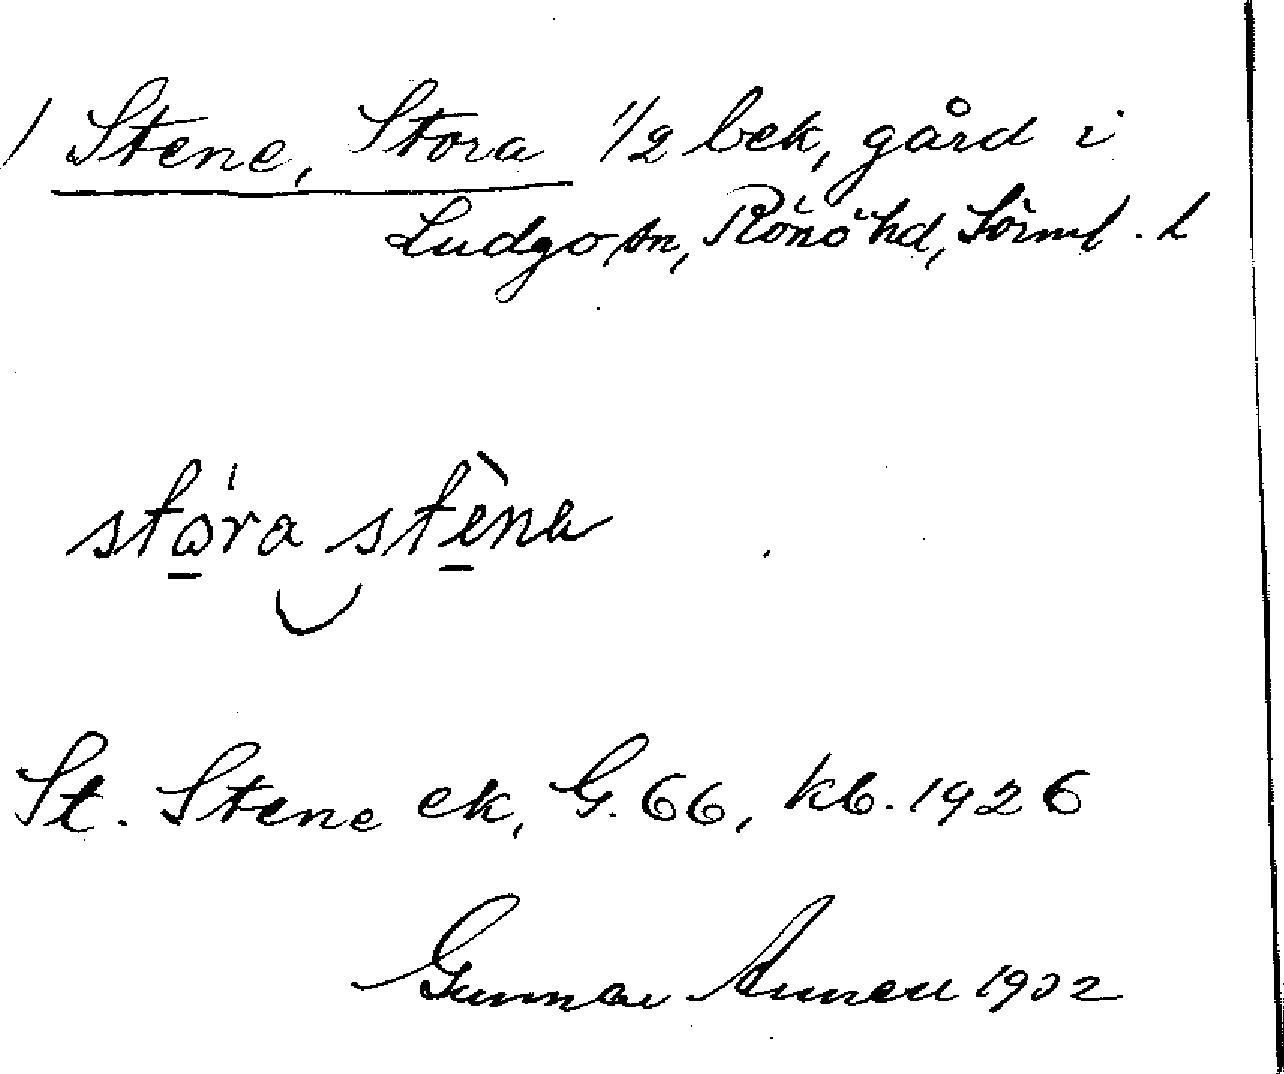 / Stene, Stora 1/2 bek, gård i
Ludgo sn, Rönö hd, Sörml. l
stora stena
St. Stene ek, G. 66, kb. 1926
Gunnar 1932